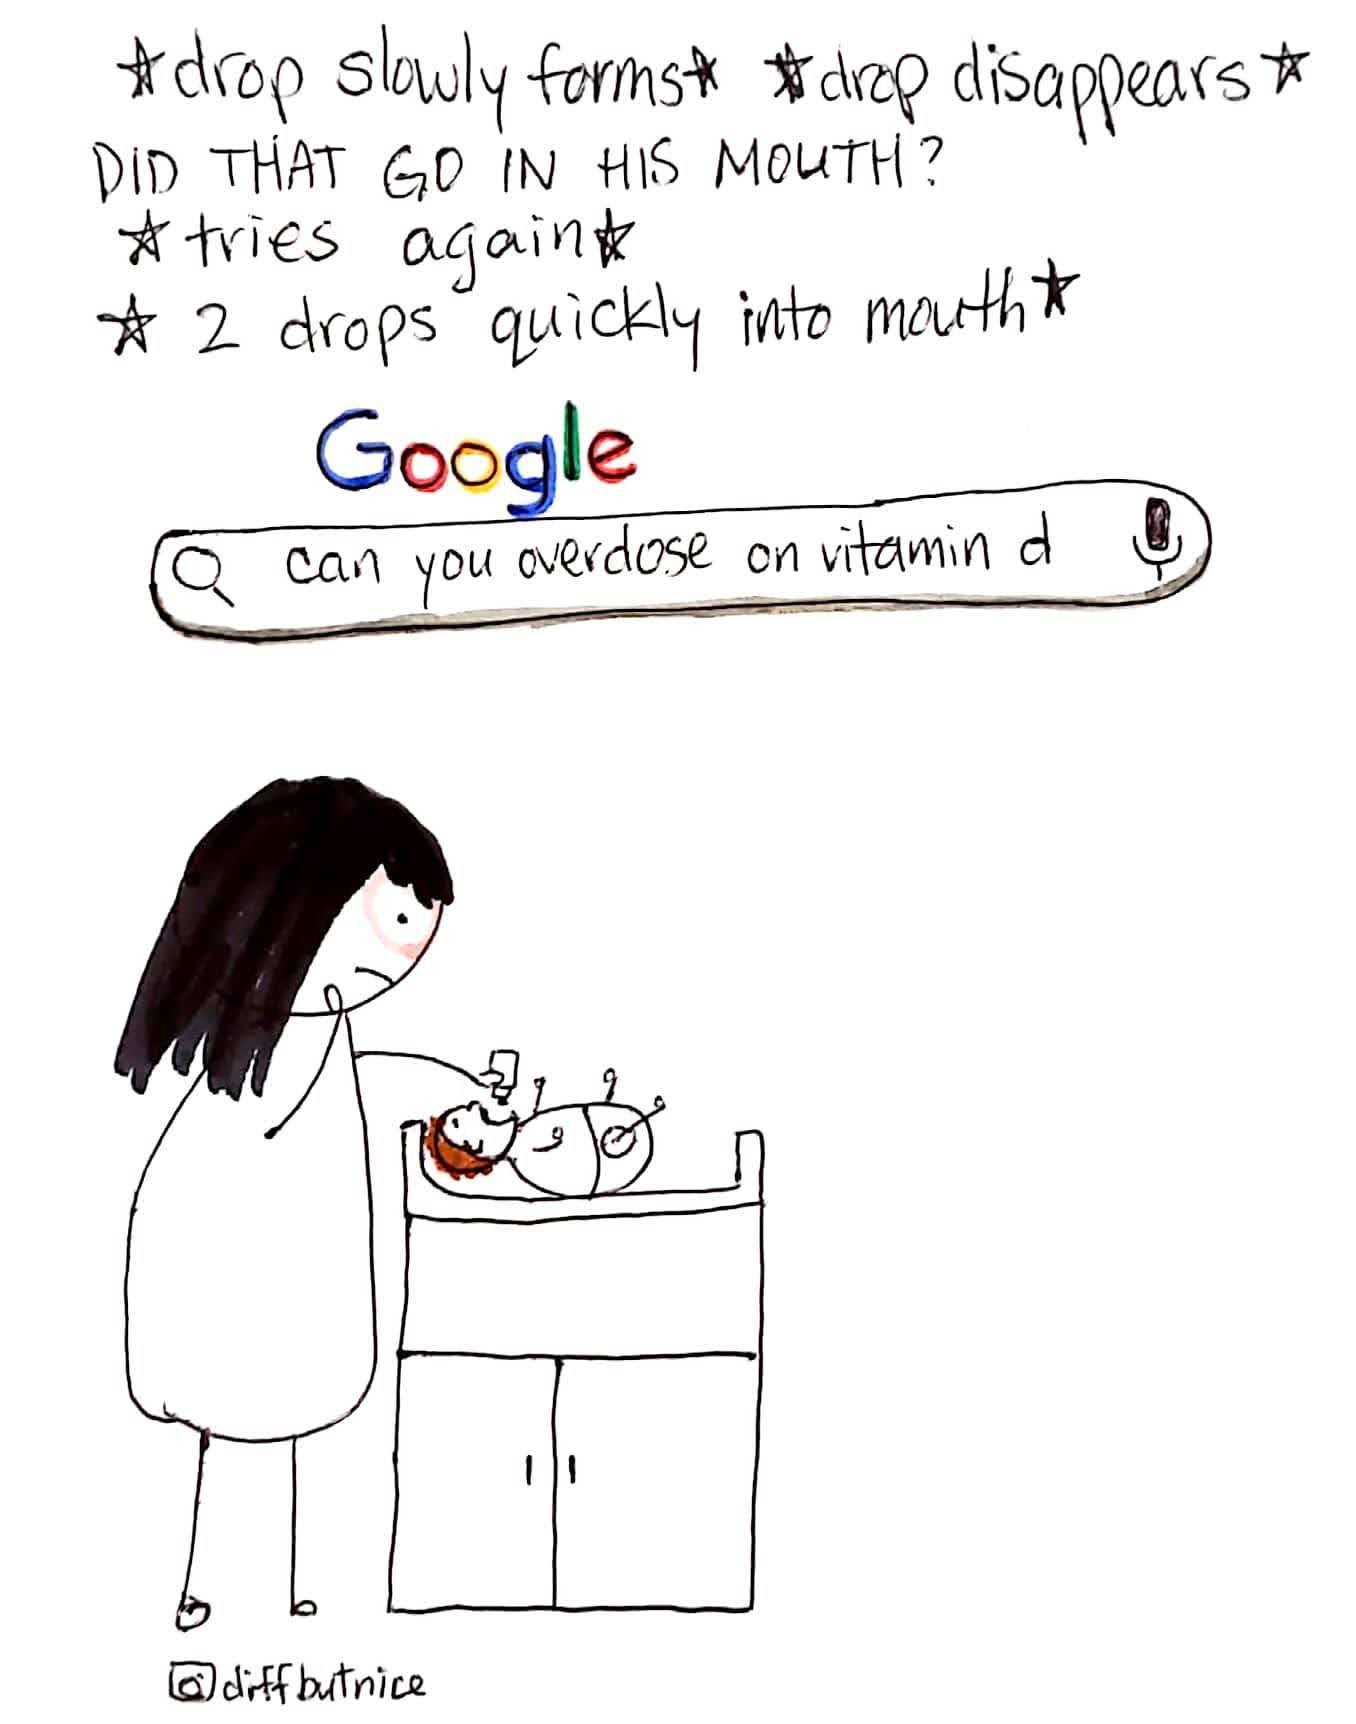 *drop slowly forms* *drop disappears*
DID THAT GO IN HIS MOUTH?
*tries again*
* 2 drops quickly into mouth*
Google
can you overdose on vitamin d
diffbutnice